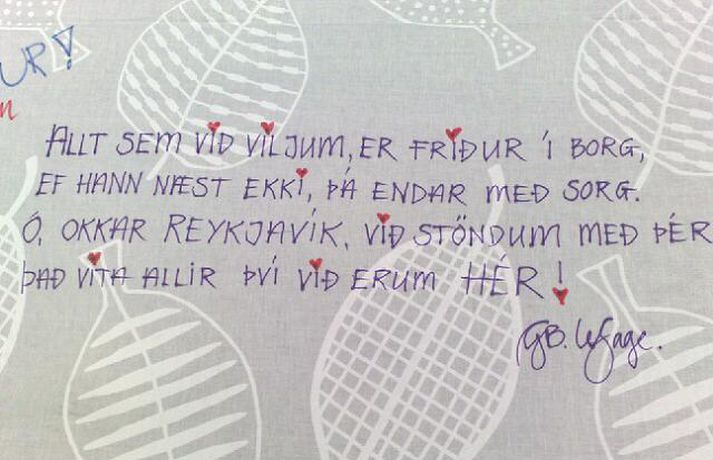 UR!
ALLT SEM VIÐ VILJUM, ER FRIÐUR Í BORG,
EF HANN NÆST EKKI, ÞÁ ENDAR MEÐ SORG.
Ó, OKKAR REYKJAVÍK, VIÐ STÖNDUM MEÐ ÞÉR
ÞAÐ VITA ALLIR ÞVÍ VIÐ ERUM HÉR!
GB. LeSage.